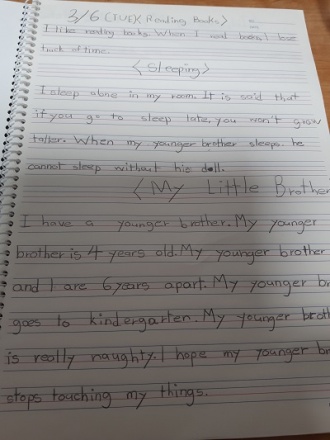 3/6 (TUE) <Reading Books>
I like reading books. When I read books, I lose
track of time.
<Sleeping>
I sleep alone in my room. It is said that
if you go to sleep late, you won't grow
taller. When my younger brother sleeps, he
cannot sleep without his doll.
<My Little Brother
I have a younger brother. My younger
brother is 4 years old. My younger brother
and I are 6 years apart. My younger br
goes to kindergarten. My younger broth
is really naughty. I hope my younger br
stops touching my things.